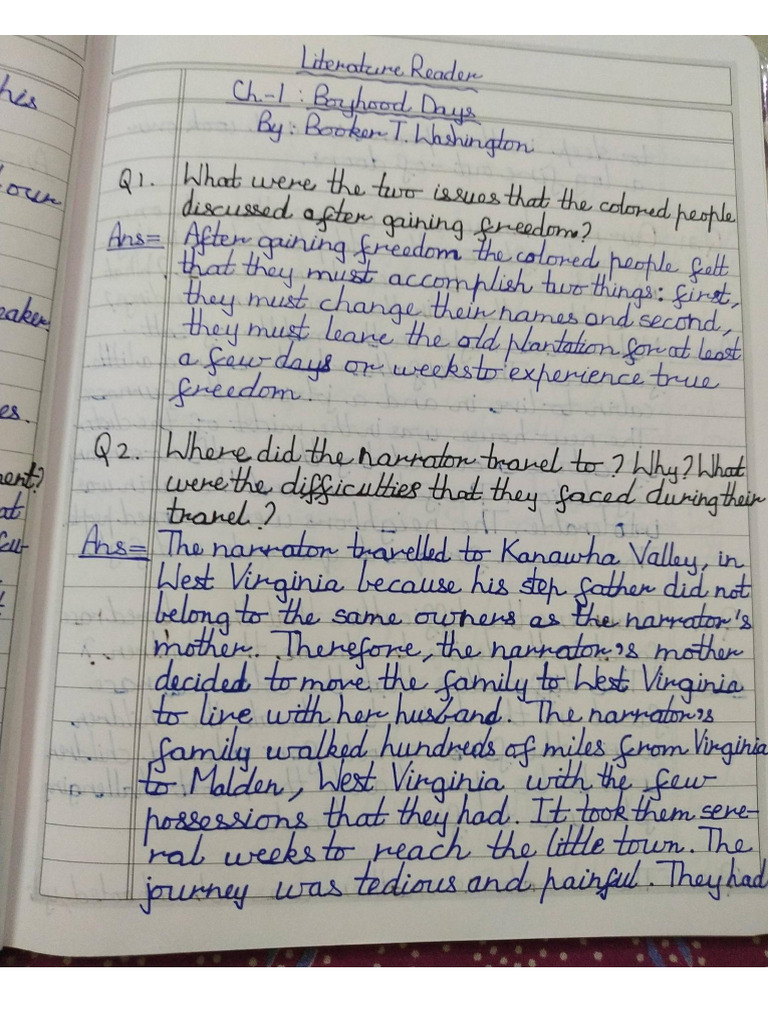 Literature Reader
Ch-1 : Boyhood Days
By: Booker T. Washington
Q1. What were the two issues that the colored people
discussed after gaining freedom?
Ans= After gaining freedom the colored people felt
that they must accomplish two things: first,
they must change their names and second,
they must leave the old plantation for at least
a few days or weeks to experience true
freedom.
Q2. Where did the narrator travel to? Why? What
were the difficulties that they faced during their
travel?
Ans= The narrator travelled to Kanawha Valley, in
West Virginia because his step father did not
belong to the same owners as the narrator's
mother. Therefore, the narrator's mother
decided to move the family to West Virginia
to live with her husband. The narrator's
family walked hundreds of miles from Virginia
to Malden, West Virginia with the few
possessions that they had. It took them seve-
ral weeks to reach the little town. The
journey was tedious and painful. They had
his
our
eaker
es.
ent?
at